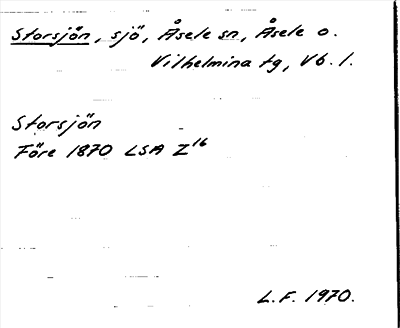 Storsjön, sjö, Åsele sn, Åsele o.
Vilhelmina tg, Vb. l.
Storsjön
Före 1870 LSA Z16
L.F. 1970.